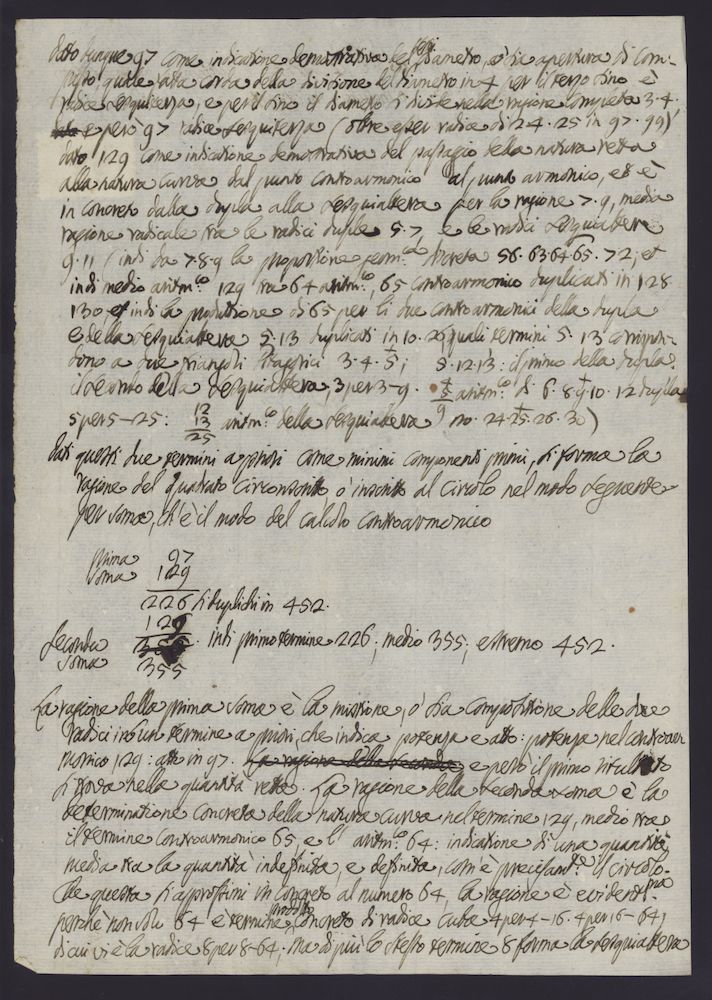 Dato dunque 97 come indicatione demostrativa del diametro, o' sia apertura di Com-
passo, quale alla corda della divisione del diametro in 4 per il terzo sino è
radice sesquiterza, e per il sino il diametro si divide nella ragione Completa 3. 4.
e però 97 radice sesquiterza (oltre esser radice di 24. 25 in 97. 99)
dato 129 come indicatione demostrativa del passagio della natura retta
alla natura curva dal punto contrarmonico al punto armonico, ed è
in concreto dalla dupla alla sesquialtera per la ragione 7. 9, media
ragione radicale tra le radici duple 5. 7, e le radici sesquialtere
9. 11 (indi da 7. 8. 9 la proportione geom.ca discreta 56. 63. 64. 65. 72; et
indi medio aritm.co 129 tra 64 aritm.co, 65 contrarmonico duplicati in 128
130 et indi la produttione di 65 per li due contrarmonici della dupla
e della sesquialtera 5. 13 duplicati in 10. 26 quali termini 5. 13 corrispon-
dono a due triangoli 3. 4. 5; 5. 12. 13: il primo della dupla:
il secondo della sesquialtera, 3 per 3 - 9. 4 5 9 aritm.co di 6. 8. 9. 10. 12 dupla
5 per 5 - 25: 12 13 25 aritm.co della sesquialtera 20. 24. 25. 26. 30)
Dati questi due termini a priori come minimi componenti primi, si forma la
ragione del quadrato circonscritto, o' inscritto al circolo nel modo seguente
per soma, ch'è il modo del calcolo contrarmonico
prima 97
soma 129
226 si duplichi in 452.
129
seconda indi primo termine 226; medio 355; estremo 452.
soma 355
La ragione della prima soma è la mistione, o' sia compositione delle due
radici in un termine a priori, che indica potenza e atto: potenza nel contrar
monico 129: atto in 97. La ragione della seconda e però il primo
si trova nella quantità retta. La ragione della seconda soma è la
determinatione concreta della natura curva nel termine 129, medio tra
il termine contrarmonico 65, e l' aritm.co 64: indicatione di una quantità
media tra la quantità indefinita, e definita, com'è precisam.te il circolo.
Che questa si approssimi in concreto al numero 64, la ragione è evidentis.ma
perchè non solo 64 è termine prodotto concreto di radice cuba 4 per 4 - 16. 4 per 16 - 64;
di cui vi è la radice 8 per 8 - 64; ma di più lo stesso termine 8 forma la sesquialtera